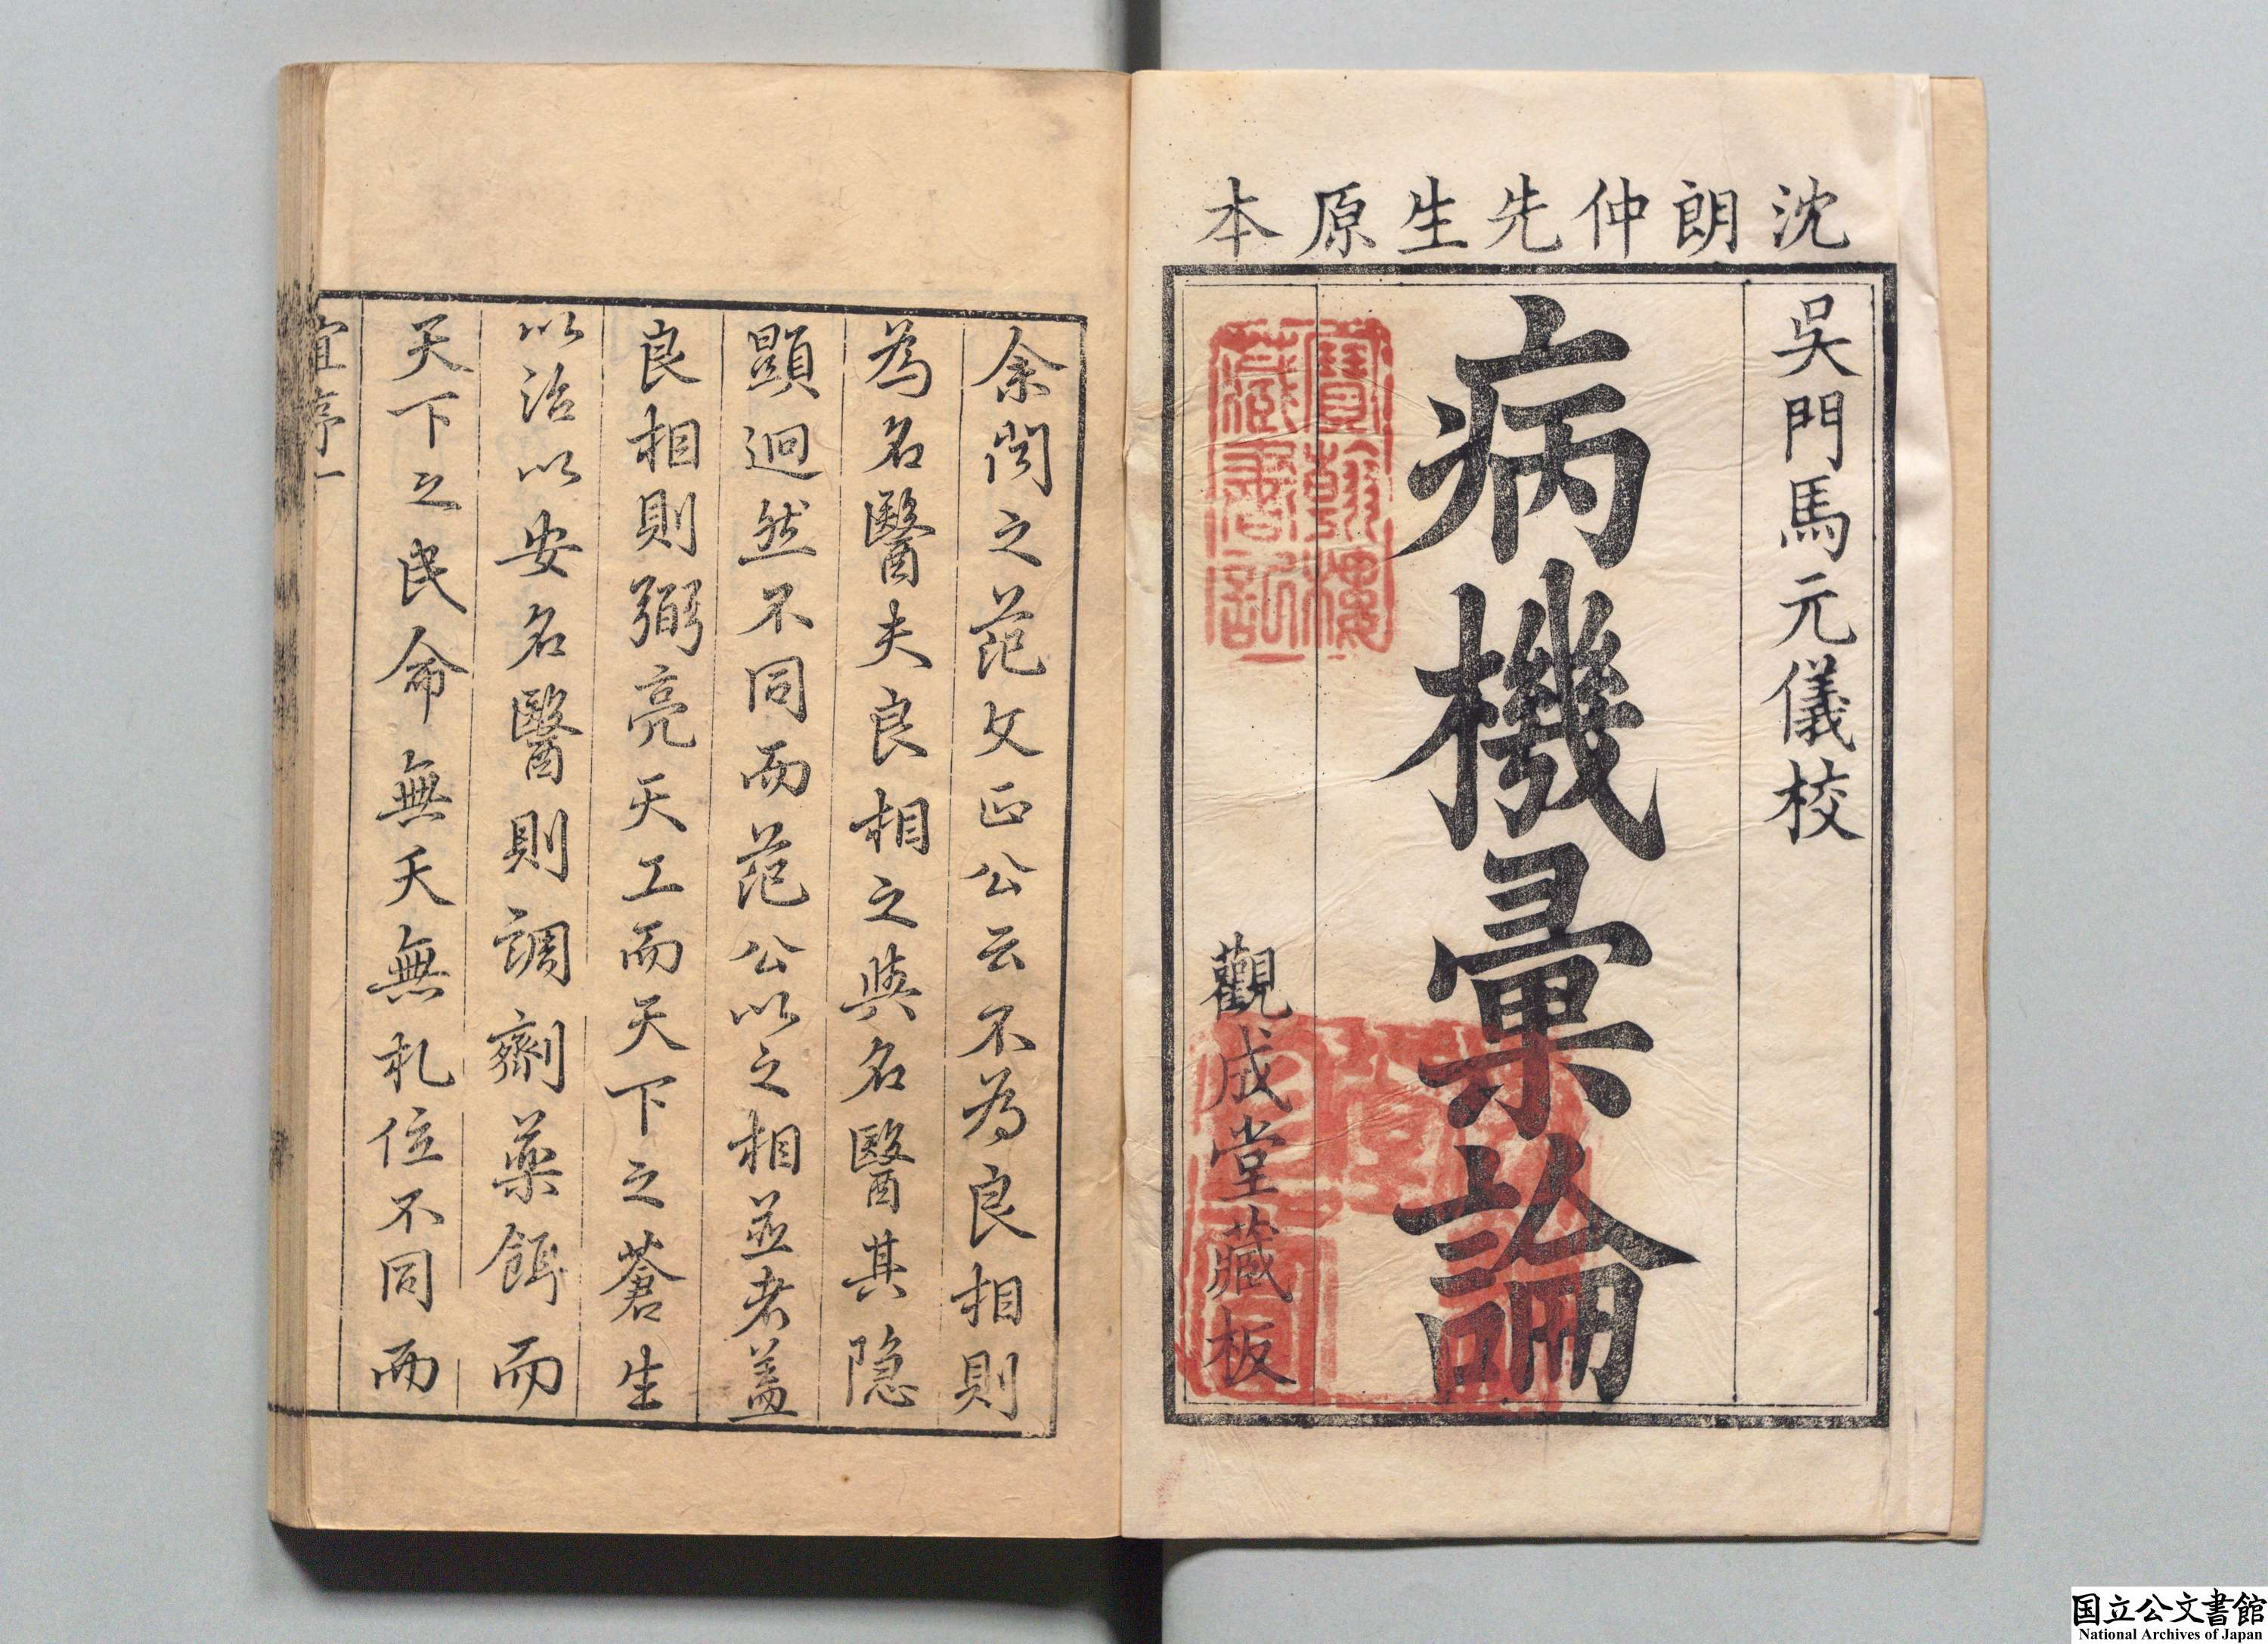 沈朗仲先生原本
吳門馬元儀校
病機彙論
觀成堂藏板
寶翰樓
藏書記
余閱之范文正公云不為良相則
為名醫夫良相之與名醫其隐
顯迥然不同而范公以之相並者蓋
良相則弼亮天工而天下之蒼生
以治以安名醫則調劑藥餌而
天下之民命無夭無札位不同而
宜序一
国立公文書館
National Archives of Japan